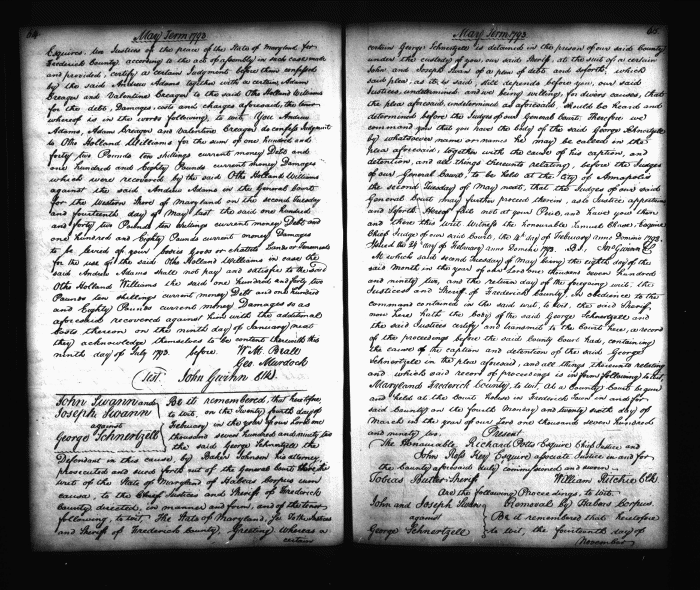 64
May Term 1793
Esquires, two Justices of the peace of the State of Maryland for
Frederick County, according to the act of assembly in such case made
and provided, certify a certain Judgment before them confessed
by the said Andrew Adams together with a certain Adam
Creager and Valentine Creager to the said Otho Holland Williams
for the debt, Damages, costs and charges aforesaid, the tenor
whereof is in the words following, to wit, You Andrew
Adams, Adam Creager and Valentine Creager do confess Judgment
to Otho Holland Williams for the sum of one hundred and
forty two Pounds ten shillings current money Debt and
one hundred and Eighty Pounds current money Damages
which were recovered by the said Otho Holland Williams
against the said Andrew Adams in the General Court
for the Western Shore of Maryland on the second Tuesday
and fourteenth day of May last the said one hundred
and forty two Pounds ten shillings current money Debt and
one hundred and Eighty Pounds current money Damages
to be levied of your bodies Goods or Chattels Lands or Tenements
for the use of the said Otho Holland Williams in case the
said Andrew Adams shall not pay and satisfie to the said
Otho Holland Williams the said one hundred and forty two
Pounds ten shillings current money Debt and one hundred
and Eighty Pounds current money Damages so as
aforesaid recovered against him with the additional
Costs thereon on the ninth day of January next
they acknowledge themselves to be content therewith this
ninth day of July 1793. before Wm. Beall
Geo Murdock
Test. John Gwinn Clk.
John Swann and
Joseph Swann
against
George Schnertzell
Be it remembered, that heretofore
to wit, on the twenty fourth day of
February in the year of our Lord one
thousand seven hundred and ninety two
the said George Schnertzell the
Defendant in this cause, by Baker Johnson his attorney,
prosecuted and sued forth out of the General Court here the
writ of the State of Maryland of Habeas Corpus cum
causa, to the Chief Justices and Sheriff of Frederick
County directed, in manner and form, and of the tenor
following, to wit, The State of Maryland, To the Justices
and Sheriff of Frederick County, Greeting whereas a
certain
May Term 1793.
65
certain George Schnertzell is detained in the prison of our said County
under the custody of you, our said Sheriff, at the suit of a certain
John and Joseph Swan of a plea of debt, and soforth, which
said plea, as it is said, still depends before you, our said
Justices, undetermined and we being willing, for divers causes, that
the plea aforesaid, undetermined as aforesaid, should be heard and
determined before the Judges of our General Court. Therefore we
command you that you have the body of the said George Schnertzell
by whatsoever name or names he may be called in the
plea aforesaid, together with the cause of his caption, and
detention, and all things thereunto relating, before the Judges
of our General Court, to be held at the City of Annapolis
the second Tuesday of May next, that the Judges of our said
General Court may further proceed therein, as to Justice appertains
and Soforth. Hereof fail not at your Peril, and have you then
and there this writ. Witness the honourable Samuel Chase, Esquire
Chief Judge of our said Court, the day of February anno Domini 1792.
Issued the 24 day of February anno Domini 1792.
At which said second tuesday of May being the eighth day of the
said Month in the year of our Lord one thousand seven hundred
and ninety two, and the return day of the foregoing writ, the
Justices and Sheriff of Frederick County, in obedience to the
command contained in the said writ, to wit, the said Sheriff,
now here hath the body of the said George Schnertzell and
the said Justices certify and transmit to the Court here, a record
of the proceedings before the said County Court had, containing
the cause of the caption and detention of the said George
Schnertzell in the plea aforesaid, and all things thereunto relating
and which said record of proceedings is in form following, to wit,
Maryland Frederick County, to wit, at a County Court begun
and held at the Court house in Frederick Town in and for
said County on the fourth Monday and twenty sixth day of
March in the year of our Lord one thousand seven hundred
and ninety Present
The Honourable Richard Potts Esquire Chief Justice, and
John Ross Key Esquire associate Justice in and for
the County aforesaid duly commissioned and sworn
Tobias Butler Sheriff William Ritchie Clk
Are the following Proceedings, to wit,
John and Joseph Swan
against
George Schnertzell
Removal by Habeas Corpus.
Be it remembered that heretofore
to wit, the fourteenth day of
November